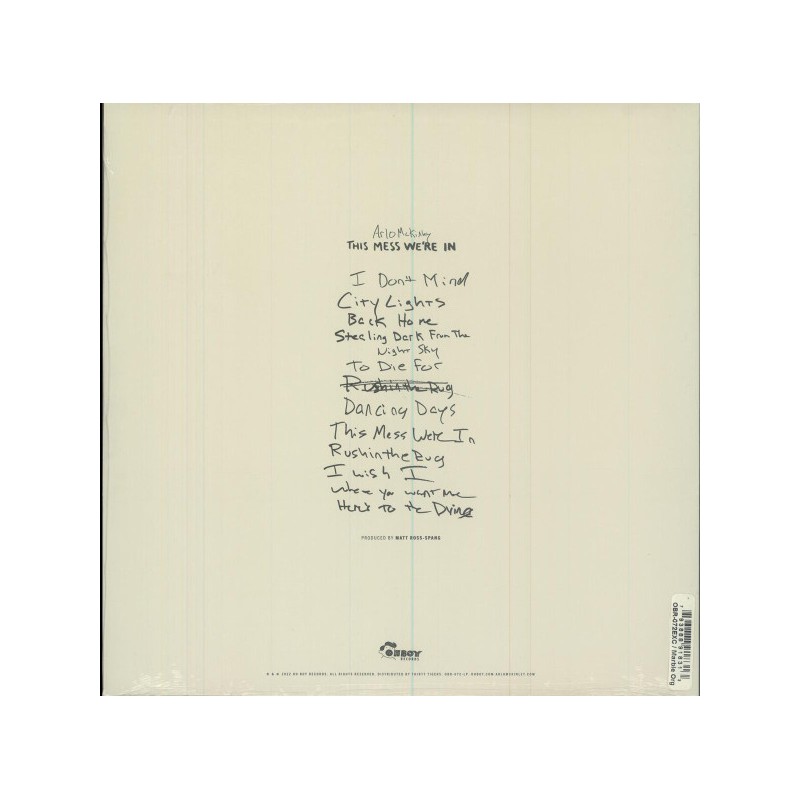 Arlo McKinley
THIS MESS WE'RE IN
I Don't Mind
City Lights
Back Home
Stealing Dark From The
Night Sky
To Die For
Rushin the Rug
Dancing Days
This Mess We're In
Rushin the Rug
I wish I
Where you want me
Here's To the Dying
PRODUCED BY MATT ROSS-SPANG
OH BOY
RECORDS
℗ & © 2022 OH BOY RECORDS. ALL RIGHTS RESERVED. DISTRIBUTED BY THIRTY TIGERS. OBR-072-LP. OHBOY.COM ARLOMCKINLEY.COM
OBR-072EXC / Marble Org